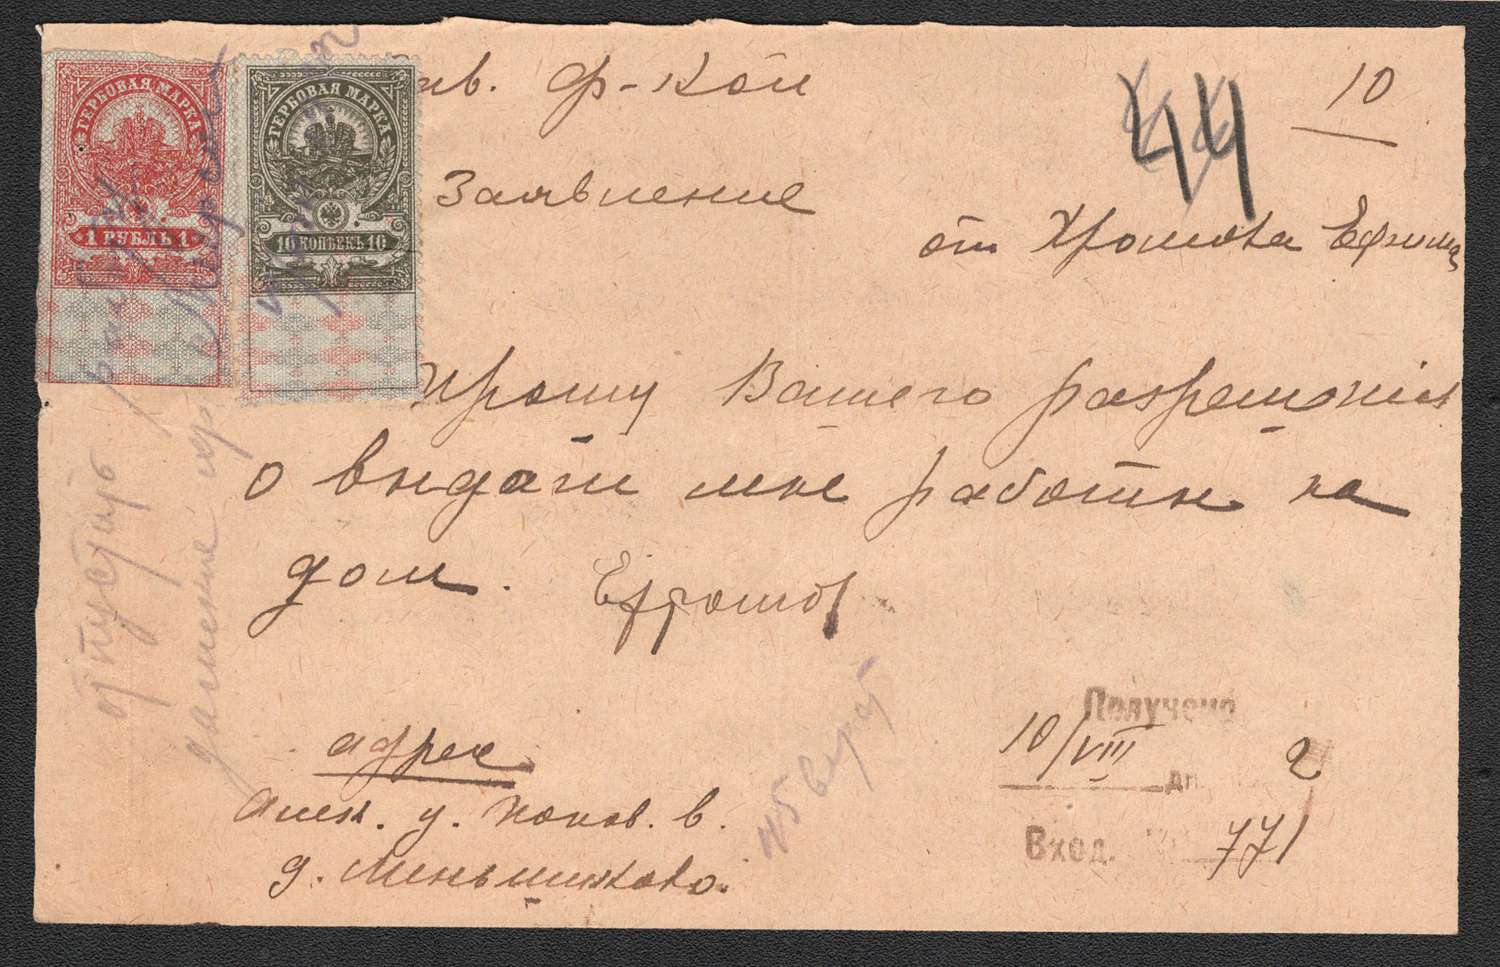 ив. ф-кой
10
44
Заявление
от Хромова Ефима
ГЕРБОВАЯ МАРКА
1 РУБЛЬ 1
ГЕРБОВАЯ МАРКА
10 КОПѢЕКЪ 10
Прошу Вашего разрешения
о выдачи мне работы на
дом.
отпустить
адрес
Алек. у. Коков. в.
д. Меньшиково.
Получено
10/VIII дн. 2
Вход. 771